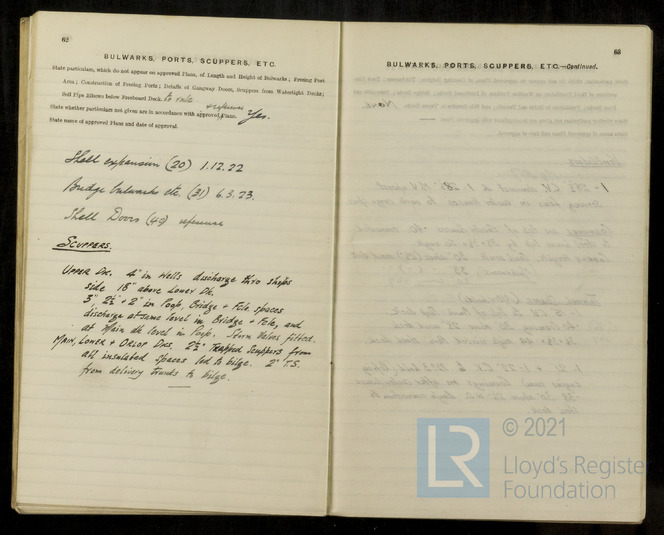 62
BULWARKS, PORTS, SCUPPERS, ETC.
State particulars, which do not appear on approved Plans, of Length and Height of Bulwarks; Freeing Port
Area; Construction of Freeing Ports; Details of Gangway Doors, Scuppers from Watertight Decks;
Soil Pipe Elbows below Freeboard Deck. to rule
State whether particulars not given are in accordance with approved Plans. Yes.
State name of approved Plans and date of approval.
Shell expansion (20) 1.12.22
Bridge bulwarks etc. (31) 6.3.23.
Shell Doors (49) reference
SCUPPERS.
UPPER DK. 4" in Wells discharge thro ships
side 18" above Lower Dk.
3" 2½" + 2" in Poop, Bridge + Fcle spaces
discharge at same level in Bridge + Fcle, and
at Main dk level in Poop. Storm Valves fitted.
MAIN, LOWER + ORLOP DKS. 2½" Trapped Scuppers from
all insulated spaces led to bilge. 2" T.S.
from delivery trunks to bilge.
63
BULWARKS, PORTS, SCUPPERS, ETC.—Continued.
LR © 2021
Lloyd's Register
Foundation